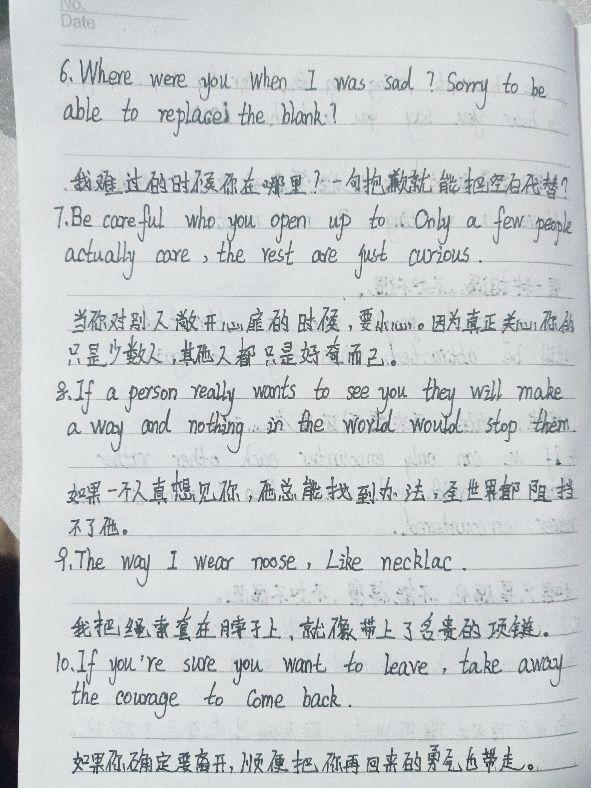 No.
Date
6. Where were you when I was sad ? Sorry to be
able to replace the blank?
我难过的时候你在哪里?一句抱歉就能把空白代替?
7. Be careful who you open up to. Only a few people
actually care , the rest are just curious .
当你对别人敞开心扉的时候,要小心。因为真正关心你的
只是少数人 其他人都只是好奇而已。
8. If a person really wants to see you they will make
a way and nothing in the world would stop them.
如果一个人真想见你,他总能找到办法,全世界都阻挡
不了他。
9. The way I wear noose , Like necklac .
我把绳索套在脖子上,就像带上了名贵的项链。
10. If you're sure you want to leave , take away
the courage to come back .
如果你确定要离开,顺便把你再回来的勇气也带走。